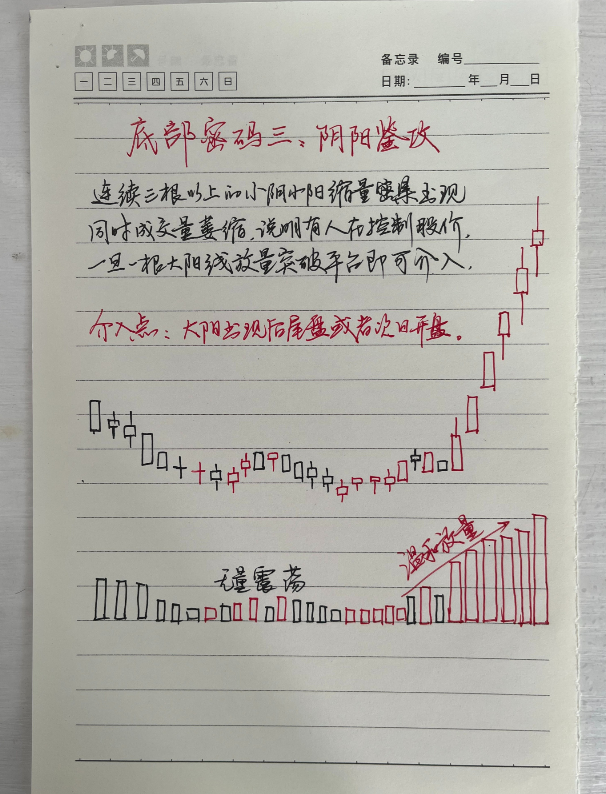 备忘录 编号
一 二 三 四 五 六 日
日期: 年 月 日
底部密码三：阴阳鉴攻
连续三根以上的小阴小阳缩量密集出现
同时成交量萎缩，说明有人在控制股价，
一旦一根大阳线放量突破平台即可介入。
介入点：大阳出现后尾盘或者次日开盘。
温和放量
无量震荡